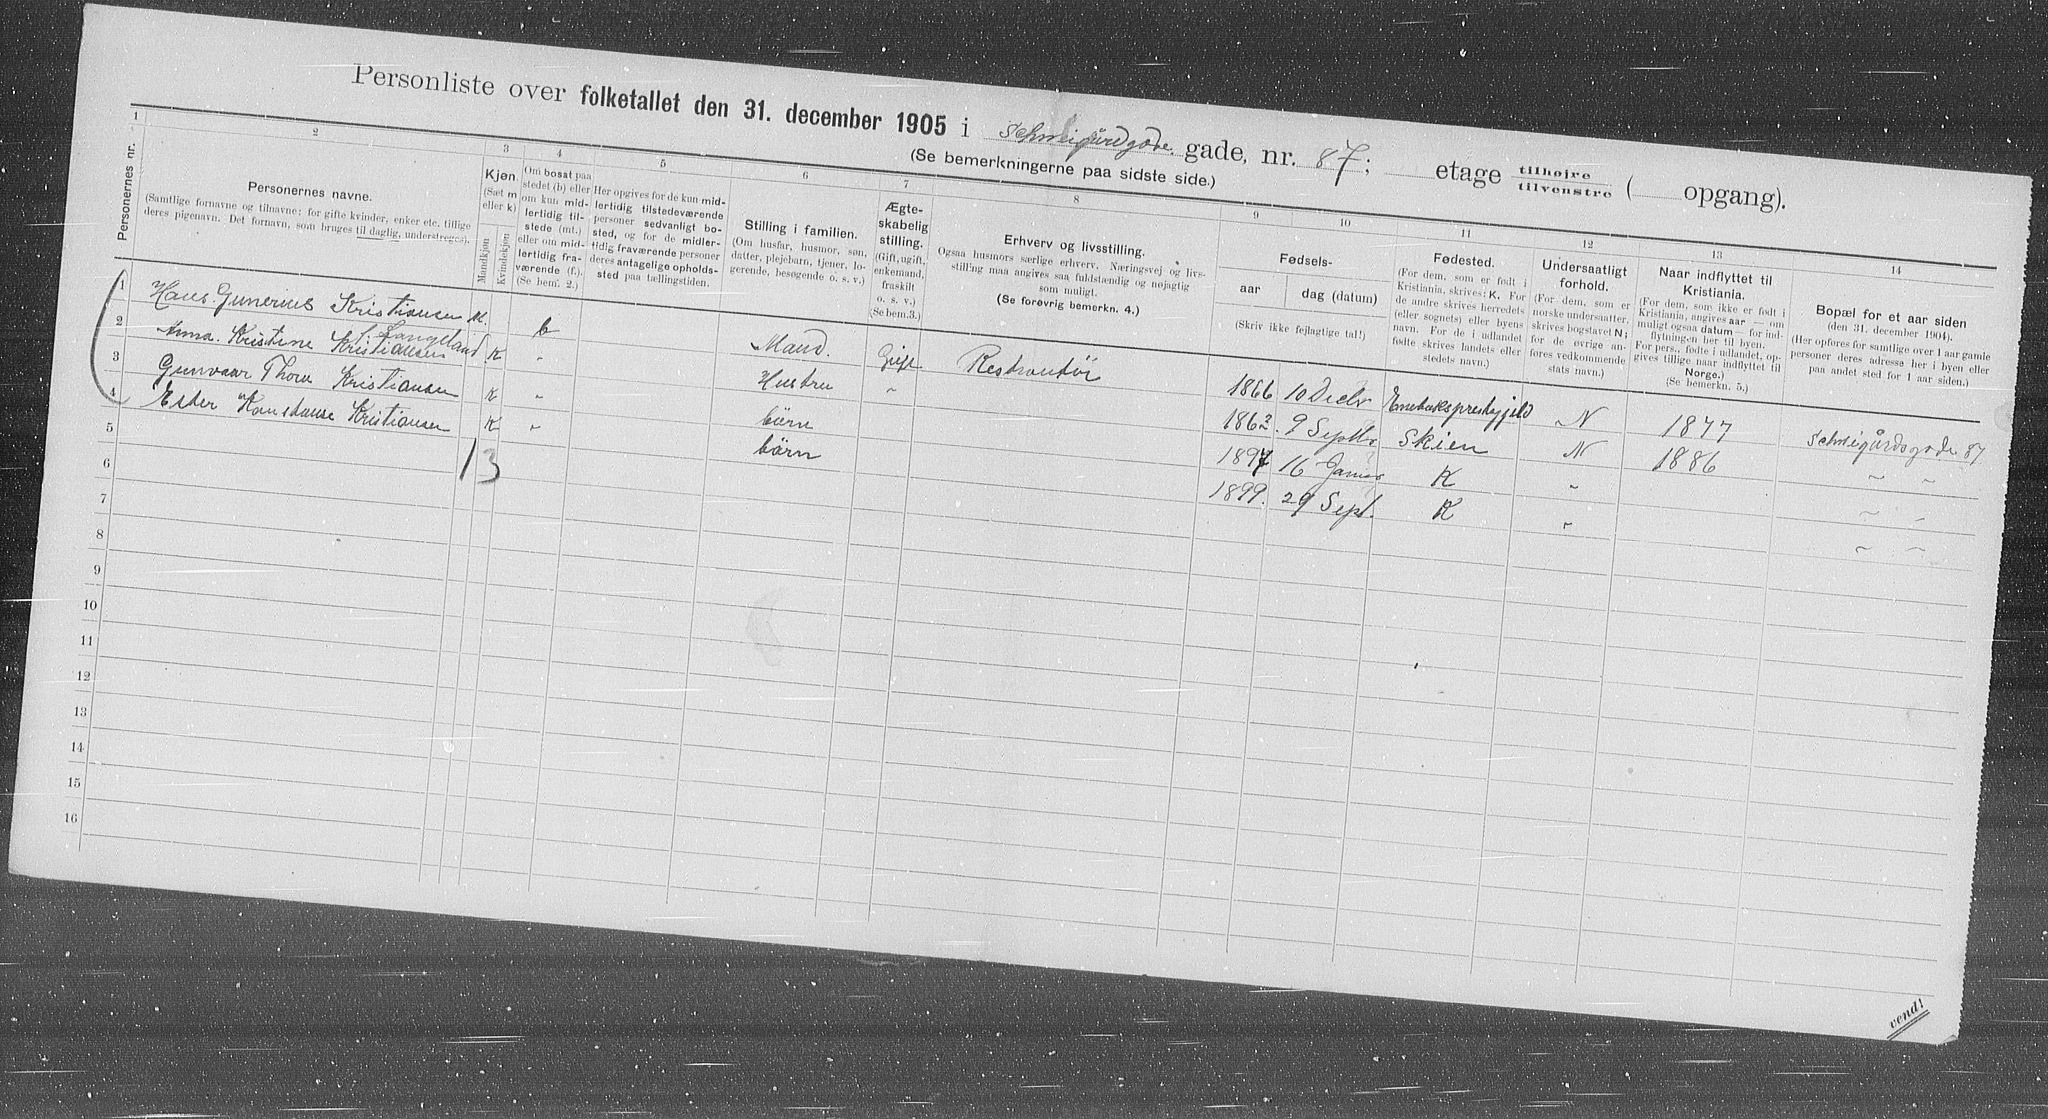 Personliste over folketallet den 31. december 1905 i Schweigårdgade. gade, nr. 87; etage tilhøjre tilvenstre ( opgang).
(Se bemerkningerne paa sidste side.)
1 2 3 4 5 6 7 8 9 10 11 12 13 14
Personernes nr.
Personernes navne.
(Samtlige fornavne og tilnavne; for gifte kvinder, enker etc. tillige
deres pigenavn. Det fornavn, som bruges til daglig, understreges).
Kjøn.
(Sæt m
eller k)
Mandkjøn
Kvindekjøn
Om bosat paa
stedet (b) eller
om kun mid-
lertidig til-
stede (mt.)
eller om mid-
lertidig fra-
værende (f.).
(Se bem. 2.)
Her opgives for de kun mid-
lertidig tilstedeværende
personer sedvanligt bo-
sted, og for de midler-
tidig fraværende personer
deres antagelige opholds-
sted paa tællingstiden.
Stilling i familien.
(Om husfar, husmor, søn,
datter, plejebarn, tjener, lo-
gerende, besøgende o. s. v.)
Ægte-
skabelig
stilling.
(Gift, ugift,
enkemand,
fraskilt
o. s. v.)
(Se bem.3.)
Erhverv og livsstilling.
Ogsaa husmors særlige erhverv. Næringsvej og livs-
stilling maa angives saa fuldstændig og nøjagtig
som muligt.
(Se forøvrig bemerkn. 4.)
Fødsels-
aar dag (datum)
(Skriv ikke fejlagtige tal!)
Fødested.
(For dem, som er født i
Kristiania, skrives: K. For
de andre skrives herredets
(eller sognets) eller byens
navn. For de i udlandet
fødte skrives landets eller
stedets navn.)
Undersaatligt
forhold.
(For dem, som er
norske undersaatter,
skrives bogstavet N;
for de øvrige an-
føres vedkommende
stats navn.)
Naar indflyttet til
Kristiania.
(For dem, som ikke er født i
Kristiania, angives aar — om
muligt ogsaa datum — for ind-
flytningen her til byen.
For pers., fødte i udlandet, op-
gives tillige naar indflyttet til
Norge.)
(Se bemerkn. 5.)
Bopæl for et aar siden
(den 31. december 1904).
(Her opføres for samtlige over 1 aar gamle
personer deres adresse her i byen eller
paa andet sted for 1 aar siden.)
1 Hans Gunerius Kristiansen M. b Mand. Gift Restrautør 1866 10 Decbr Enebaksprestegjeld N 1877 Schweigårdsgade 87
f. Langeland
2 Anna. Kristine Kristiansen K " Hustru " 1863. 9 Septbr Skien N 1886 " "
3 Gunvaar Thora Kristiansen K " börn 1897 16 Januar K " " "
4 Ester Konstanse Kristiansen K " börn 1899. 29 Sept. K " " "
1 3
5
6
7
8
9
10
11
12
13
14
15
16
vend!